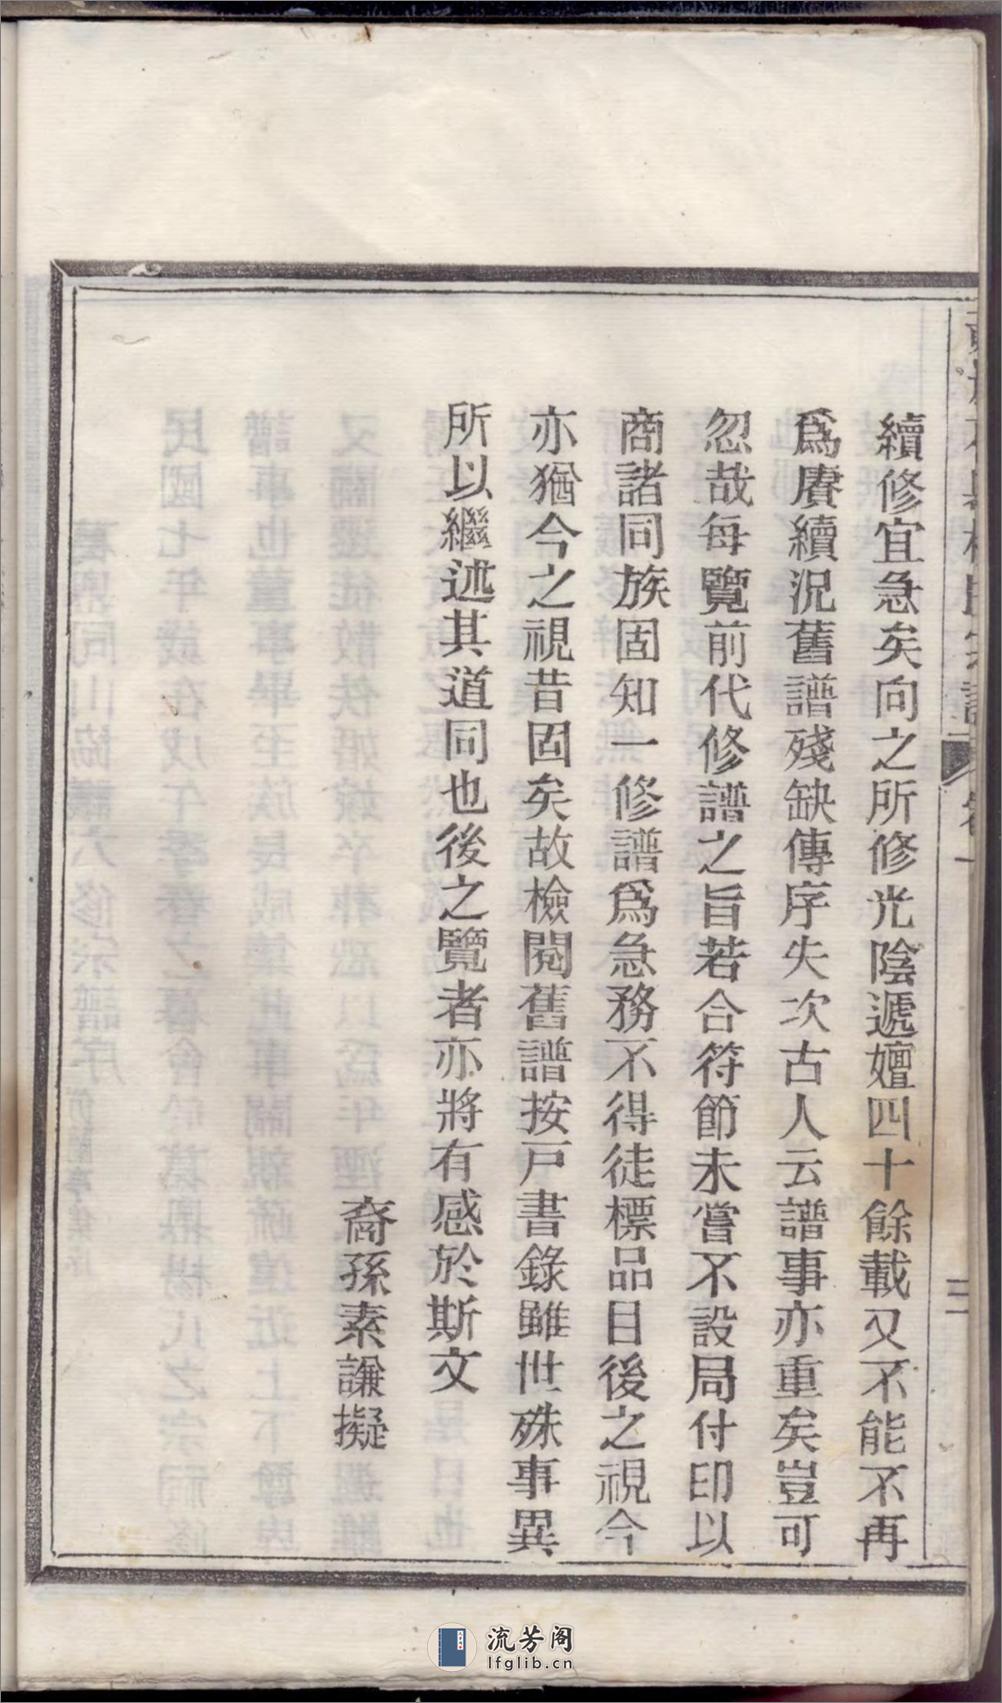 續修宜急矣向之所修光陰遞嬗四十餘載又不能不再
爲賡續況舊譜殘缺傳序失次古人云譜事亦重矣豈可
忽哉每覽前代修譜之旨若合符節未嘗不設局付印以
商諸同族固知一修譜爲急務不得徒標品目後之視今
亦猶今之視昔固矣故檢閱舊譜按戶書錄雖世殊事異
所以繼述其道同也後之覽者亦將有感於斯文
裔孫素謙擬
流芳阁
lfglib.cn